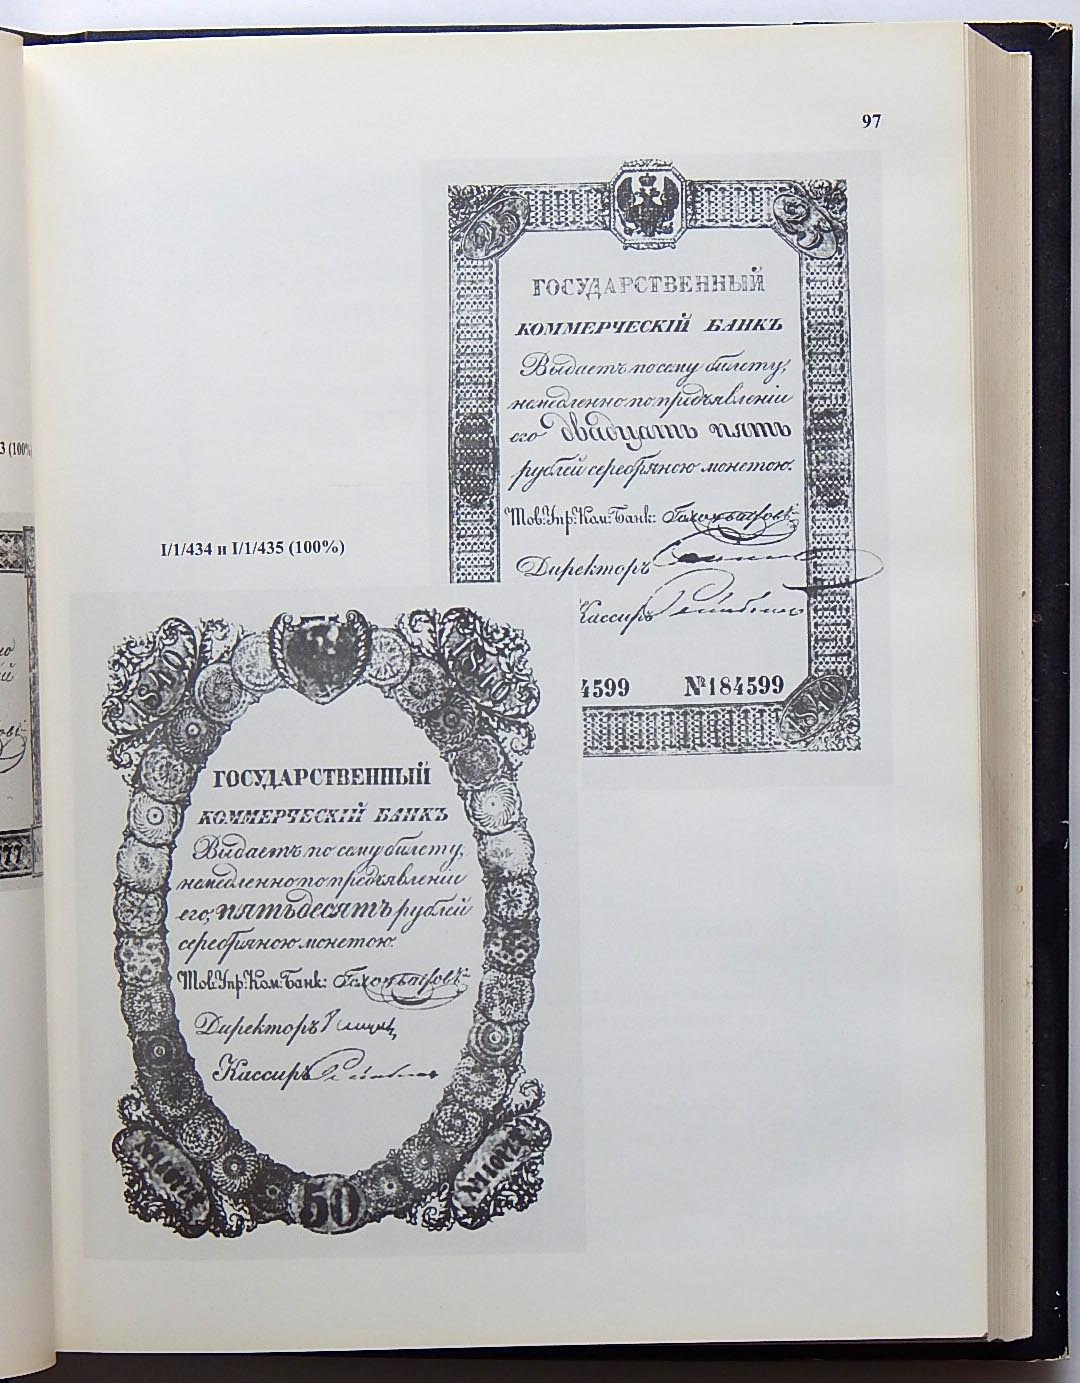 97
25
25
ГОСУДАРСТВЕННЫЙ
КОММЕРЧЕСКІЙ БАНКЪ
Выдаетъ по сему билету,
немедленно по предъявленіи
его двадцать пять
рублей серебряною монетою.
Тов: Упр: Ком: Банк:
Директоръ
Кассиръ
4599 №184599
1840
3 (100%
I/1/434 и I/1/435 (100%)
1840
1840
ГОСУДАРСТВЕННЫЙ
КОММЕРЧЕСКІЙ БАНКЪ
Выдаетъ по сему билету,
немедленно по предъявленіи
его, пятьдесятъ рублей
серебряною монетою.
Тов: Упр: Ком: Банк:
Директоръ
Кассиръ
50